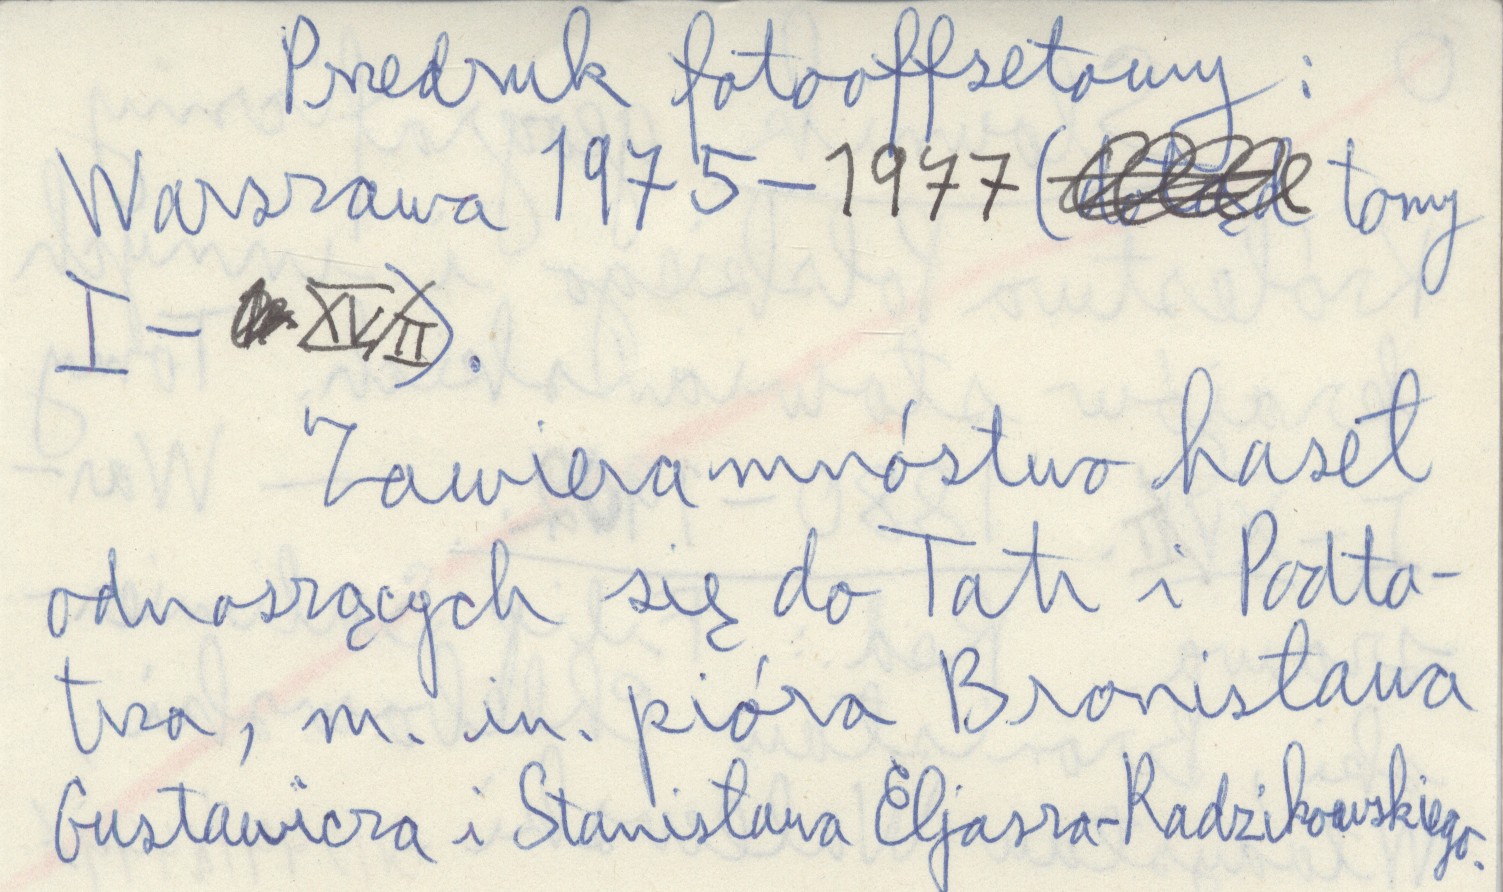 Przedruk fotooffsetowy :
Warszawa 1975–1977 (dotąd tomy
I – XV/II).
Zawiera mnóstwo haseł
odnoszących się do Tatr i Podta-
trza, m. in. pióra Bronisława
Gustawicza i Stanisława Eljasza-Radzikowskiego.